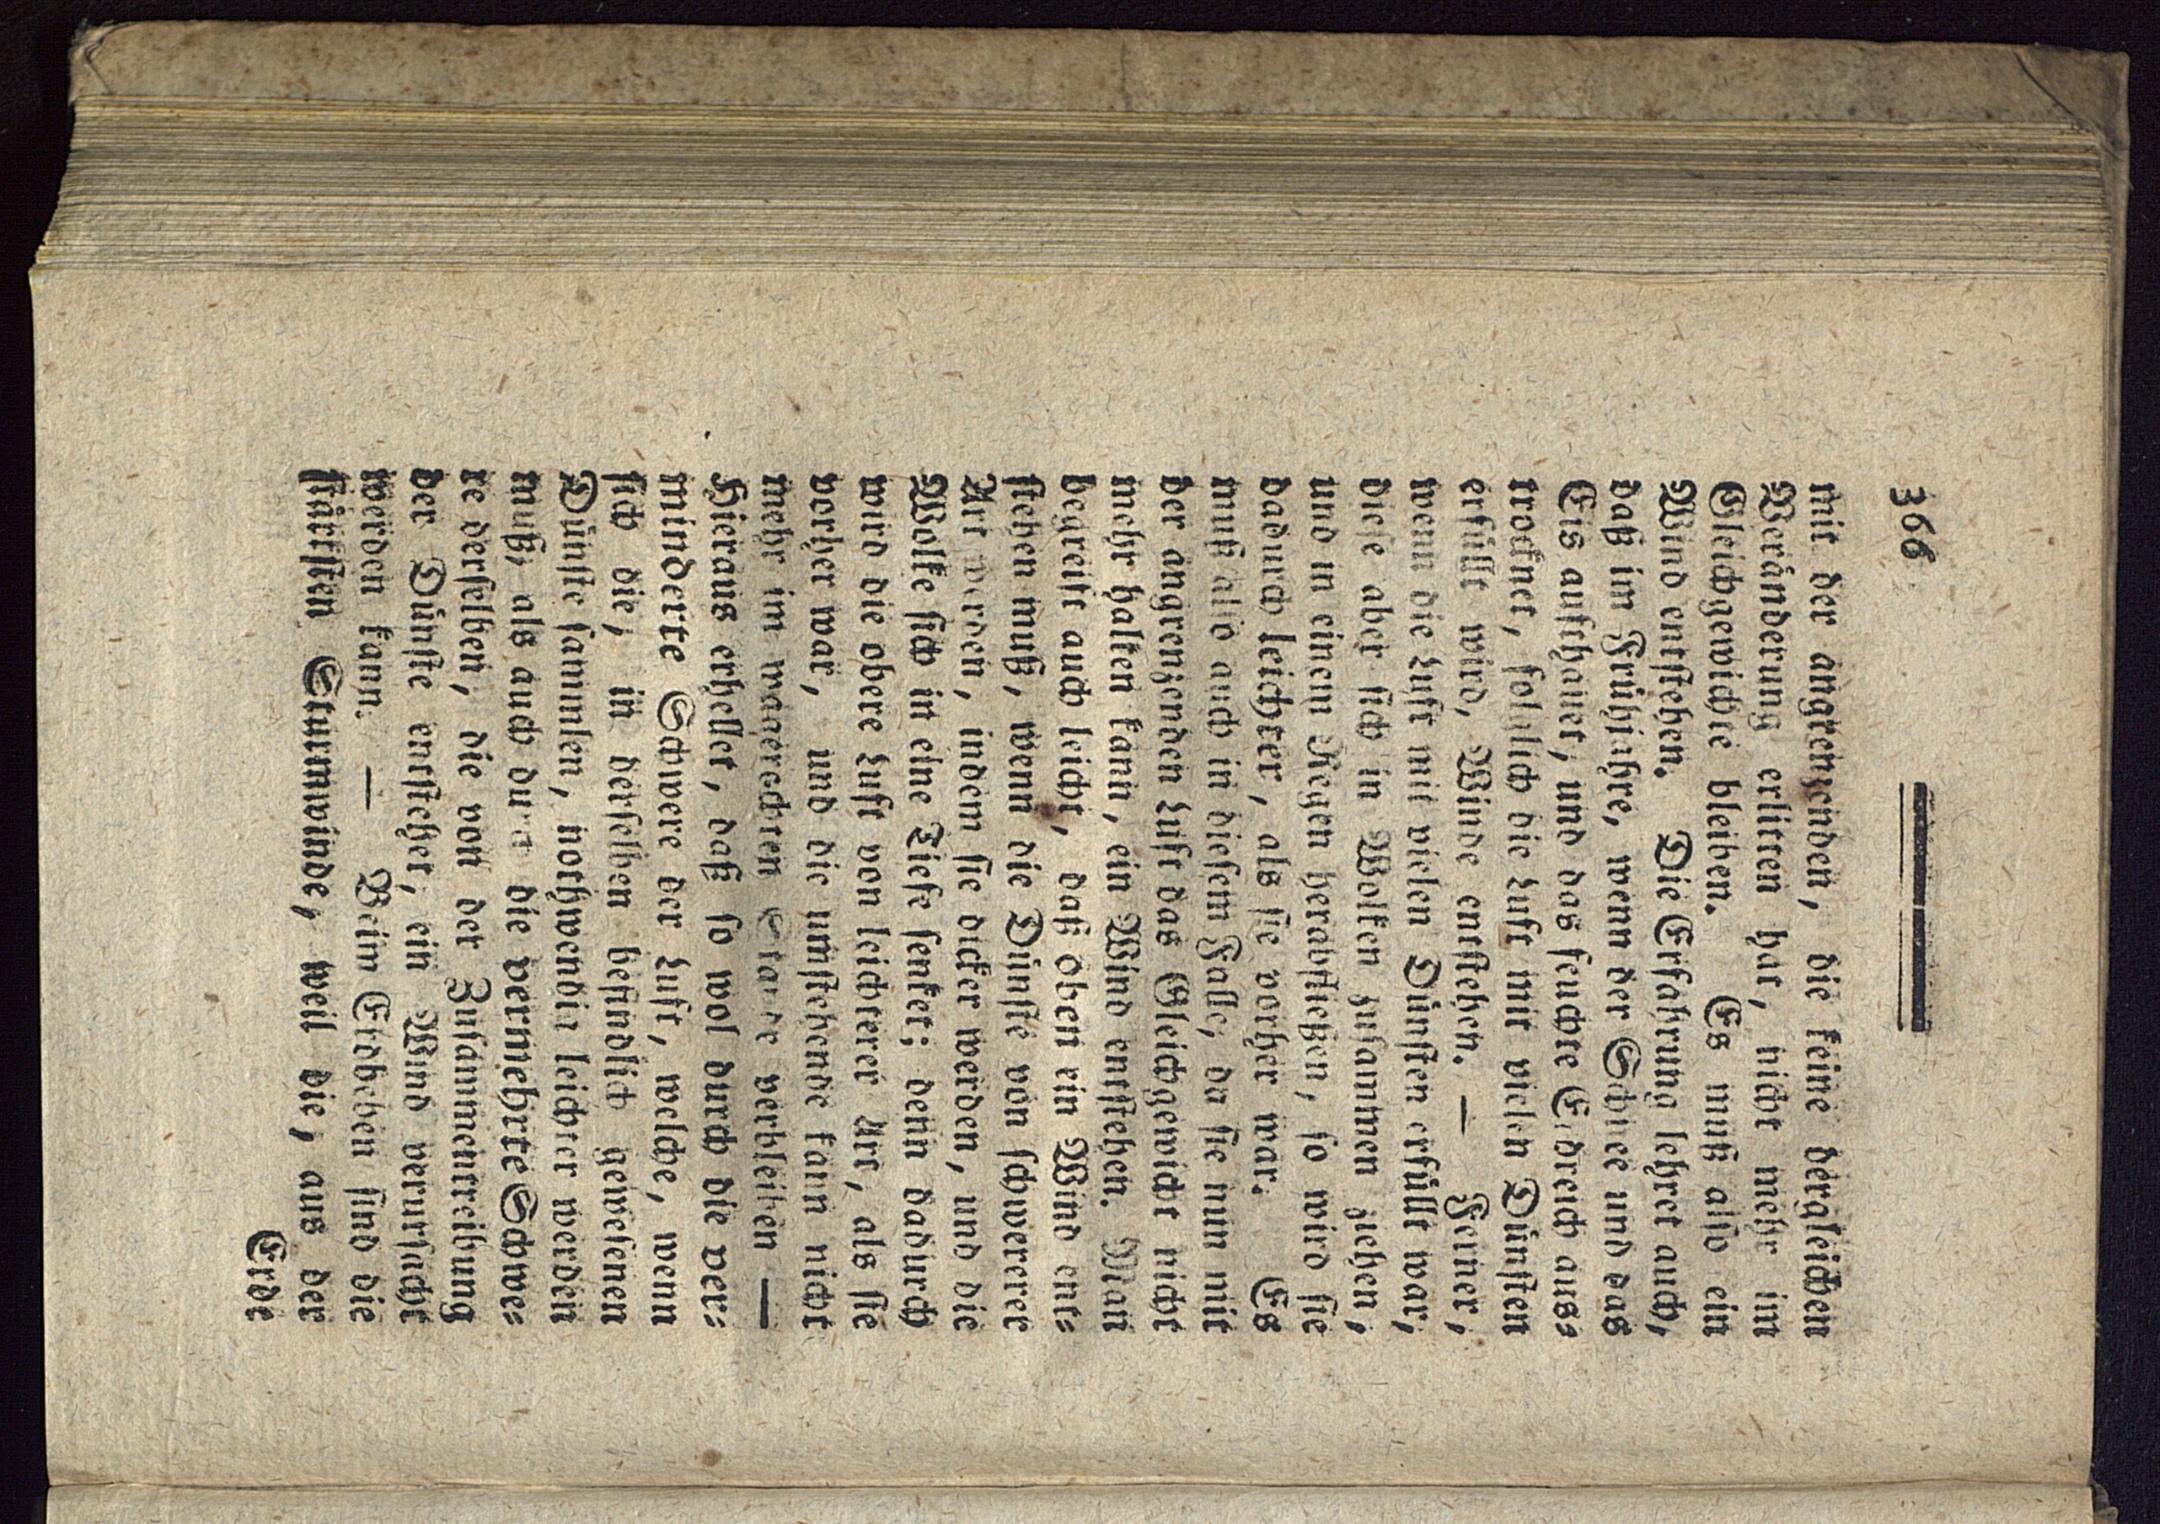 366
mit der angrenzenden, die keine dergleichen
Veränderung erlitten hat, nicht mehr im
Gleichgewichte bleiben. Es muß also ein
Wind entstehen. Die Erfahrung lehret auch,
daß im Frühjahre, wenn der Schnee und das
Eis aufthauet, und das feuchte Erdreich aus-
trocknet, folglich die Luft mit vielen Dünsten
erfüllt wird, Winde entstehen. — Ferner,
wenn die Luft mit vielen Dünsten erfüllt war,
diese aber sich in Wolken zusammen ziehen,
und in einem Regen herabstiegen, so wird sie
dadurch leichter, als sie vorher war. Es
muß also auch in diesem Falle, da sie nun mit
der angrenzenden Luft das Gleichgewicht nicht
mehr halten kann, ein Wind entstehen. Man
begreift auch leicht, daß oben ein Wind ent-
stehen muß, wenn die Dünste von schwerer
Art werden, indem sie dicker werden, und die
Wolke sich in eine Tiefe senket; denn dadurch
wird die obere Luft von leichterer Art, als sie
vorher war, und die umstehende kann nicht
mehr im wagerechten Stande verbleiben —
Hieraus erhellet, daß so wol durch die ver-
minderte Schwere der Luft, welche, wenn
sich die, in derselben befindlich gewesenen
Dünste sammlen, nothwendig leichter werden
muß, als auch durch die vermehrte Schwe-
re derselben, die von der Zusammentreibung
der Dünste entstehet, ein Wind verursacht
werden kann. — Beim Erdbeben sind die
stärksten Sturmwinde, weil die, aus der
Erde